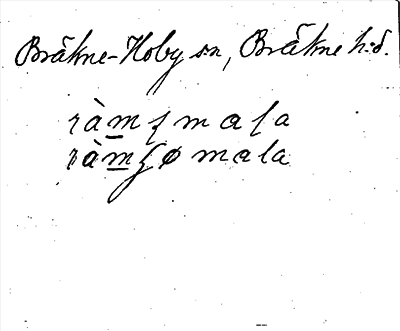 Bräkne-Hoby s:n, Bräkne h:d.
ràmʃmaʃa
ràmʃømala